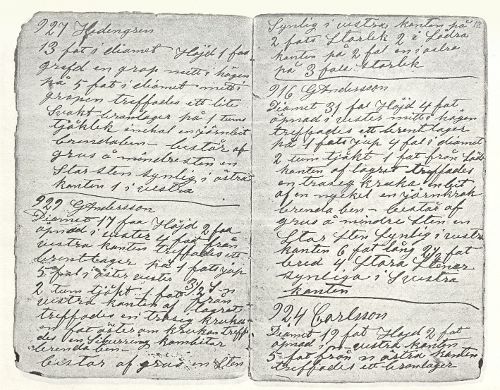 927 Hedengren
13 fot i diamet Höjd 1 fot
grefd en grop mitt i högen
på 5 fot i diamet mitt i
gropen treffades ett lite
Svakt branlager på 1 tums
tjoklek enekal en jernbit
brendaben bestor af
grus å mindresten en
Stor sten synlig i östra
kanten 1 i vestra
922 G Andersson
Diamet 17 fot Höjd 2 fot
öpnad i vester 4 fot från
vestra kanten treffades ett
brentlager på 1 fots jup
5 fot i öster vester
2 tum tjokt 1 fot från
vestra kanten af lagret
treffades en trasig kruka
en fot öster om krukan treff
des en Sijlring kambitar
brenda ben
bestor af grus en Sten
Synlig i vestra kanten på
2 fots Storlek 2 i Södra
kanten på 2 fot en i östra
på 3 fots Storlek
916 G Andersson
Diamet 31 fot Höjd 4 fot
öpnad i vester mitt i högen
treffades ett brent lager
på 1 fots jup 4 fot i diamet
2 tum tjokt 1 fot från
kanten af lagret treffades
en trasig kruka en bit
af en nyckel en jernkrok
brenda ben bestor af
grus å mindre Sten en
Stor Sten Synlig i vestra
kanten 6 fot lång 2½ fot
bred 4 Stora Stenar
synliga i S vestra
kanten
924 Carlsson
Diamet 19 fot Höjd 2 fot
öpnad i n vestra kanten
5 fot från n östra kanten
treffades ett branlager